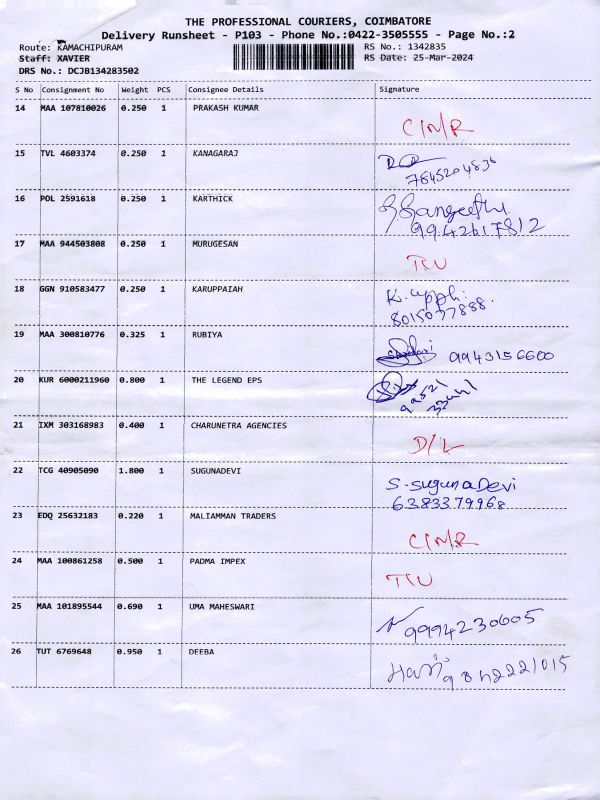 THE PROFESSIONAL COURIERS, COIMBATORE
Delivery Runsheet - P103 - Phone No.:0422-3505555 - Page No.:2
Route: KAMACHIPURAM RS No.: 1342835
Staff: XAVIER RS Date: 25-Mar-2024
DRS No.: DCJB134283502
S No Consignment No Weight PCS Consignee Details Signature
14 MAA 107810026 0.250 1 PRAKASH KUMAR
C/N/R
15 TVL 4603374 0.250 1 KANAGARAJ
7845204836
16 POL 2591618 0.250 1 KARTHICK
9942617812
17 MAA 944503808 0.250 1 MURUGESAN
18 GGN 910583477 0.250 1 KARUPPAIAH
8015037888
19 MAA 300810776 0.325 1 RUBIYA
9943156600
20 KUR 6000211960 0.800 1 THE LEGEND EPS
21 IXM 303168983 0.400 1 CHARUNETRA AGENCIES
D/L
22 TCG 40905090 1.800 1 SUGUNADEVI
S. Suguna Devi
6383379968
23 EDQ 25632183 0.220 1 MALIAMMAN TRADERS
C/N/R
24 MAA 100861258 0.500 1 PADMA IMPEX
25 MAA 101895544 0.690 1 UMA MAHESWARI
9994230605
26 TUT 6769648 0.950 1 DEEBA